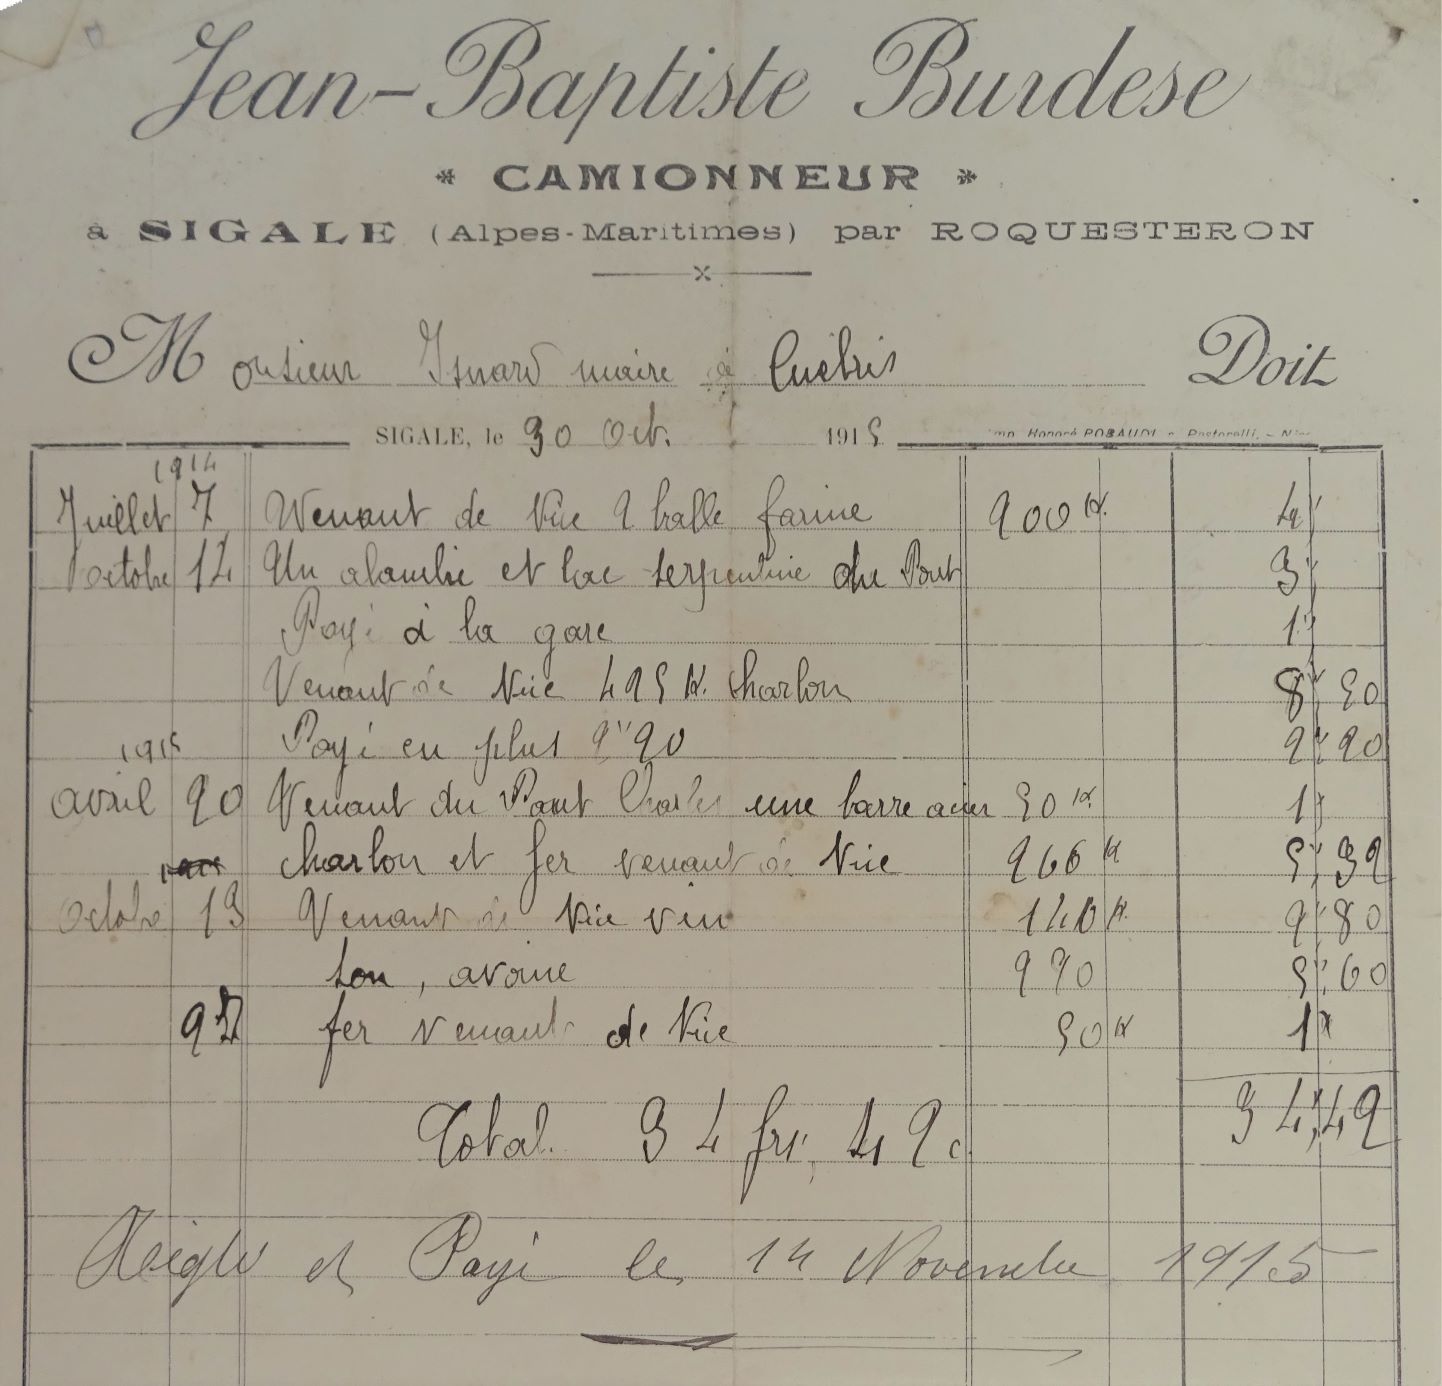 Jean-Baptiste Burdese
* CAMIONNEUR *
à SIGALE (Alpes-Maritimes) par ROQUESTERON
Monsieur Isnard maire à Cuébris Doit
SIGALE, le 30 Oct. 1915
Imp. Honoré ROBAUDI, Pastorelli, - Nice
1914
Juillet 7 Venant de Nice 2 balle farine 200 K. 4"
octobre 12 Un alambic et bac serpentine du Pont 3"
Payé à la gare 1"
Venant de Nice 425 K. charbon 8" 50
Payé en plus 2" 20 2" 20
1915
avril 20 Venant du Pont Charles une barre acier 50 K. 1"
charbon et fer venant de Nice 266 K 5" 32
Octobre 13 Venant de Nice vin 140 K. 2" 80
son, avoine 220 5" 60
27 fer venant de Nice 50 K 1"
Total. 34 frs, 42 c. 34,42
Réglé et Payé le 14 Novembre 1915